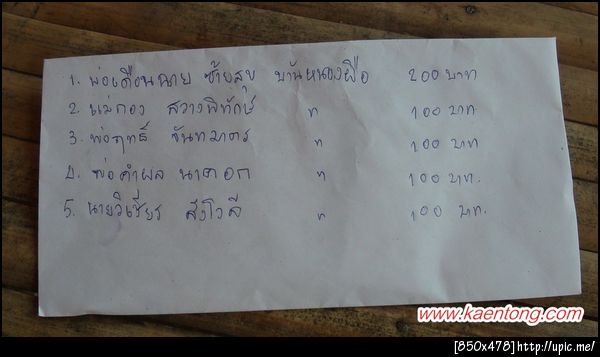 1. พ่อเดือนฉาย ซ้ายสุข บ้านหนองผือ 200 บาท
2. แม่กอง สว่างพิทักษ์ " 100 บาท
3. พ่อฤทธิ์ จันทมาตร " 100 บาท
4. พ่อคำผล นาคอก " 100 บาท.
5. นายวิเชียร สังโวลี " 100 บาท.
www.kaentong.com
[850x478]http://upic.me/